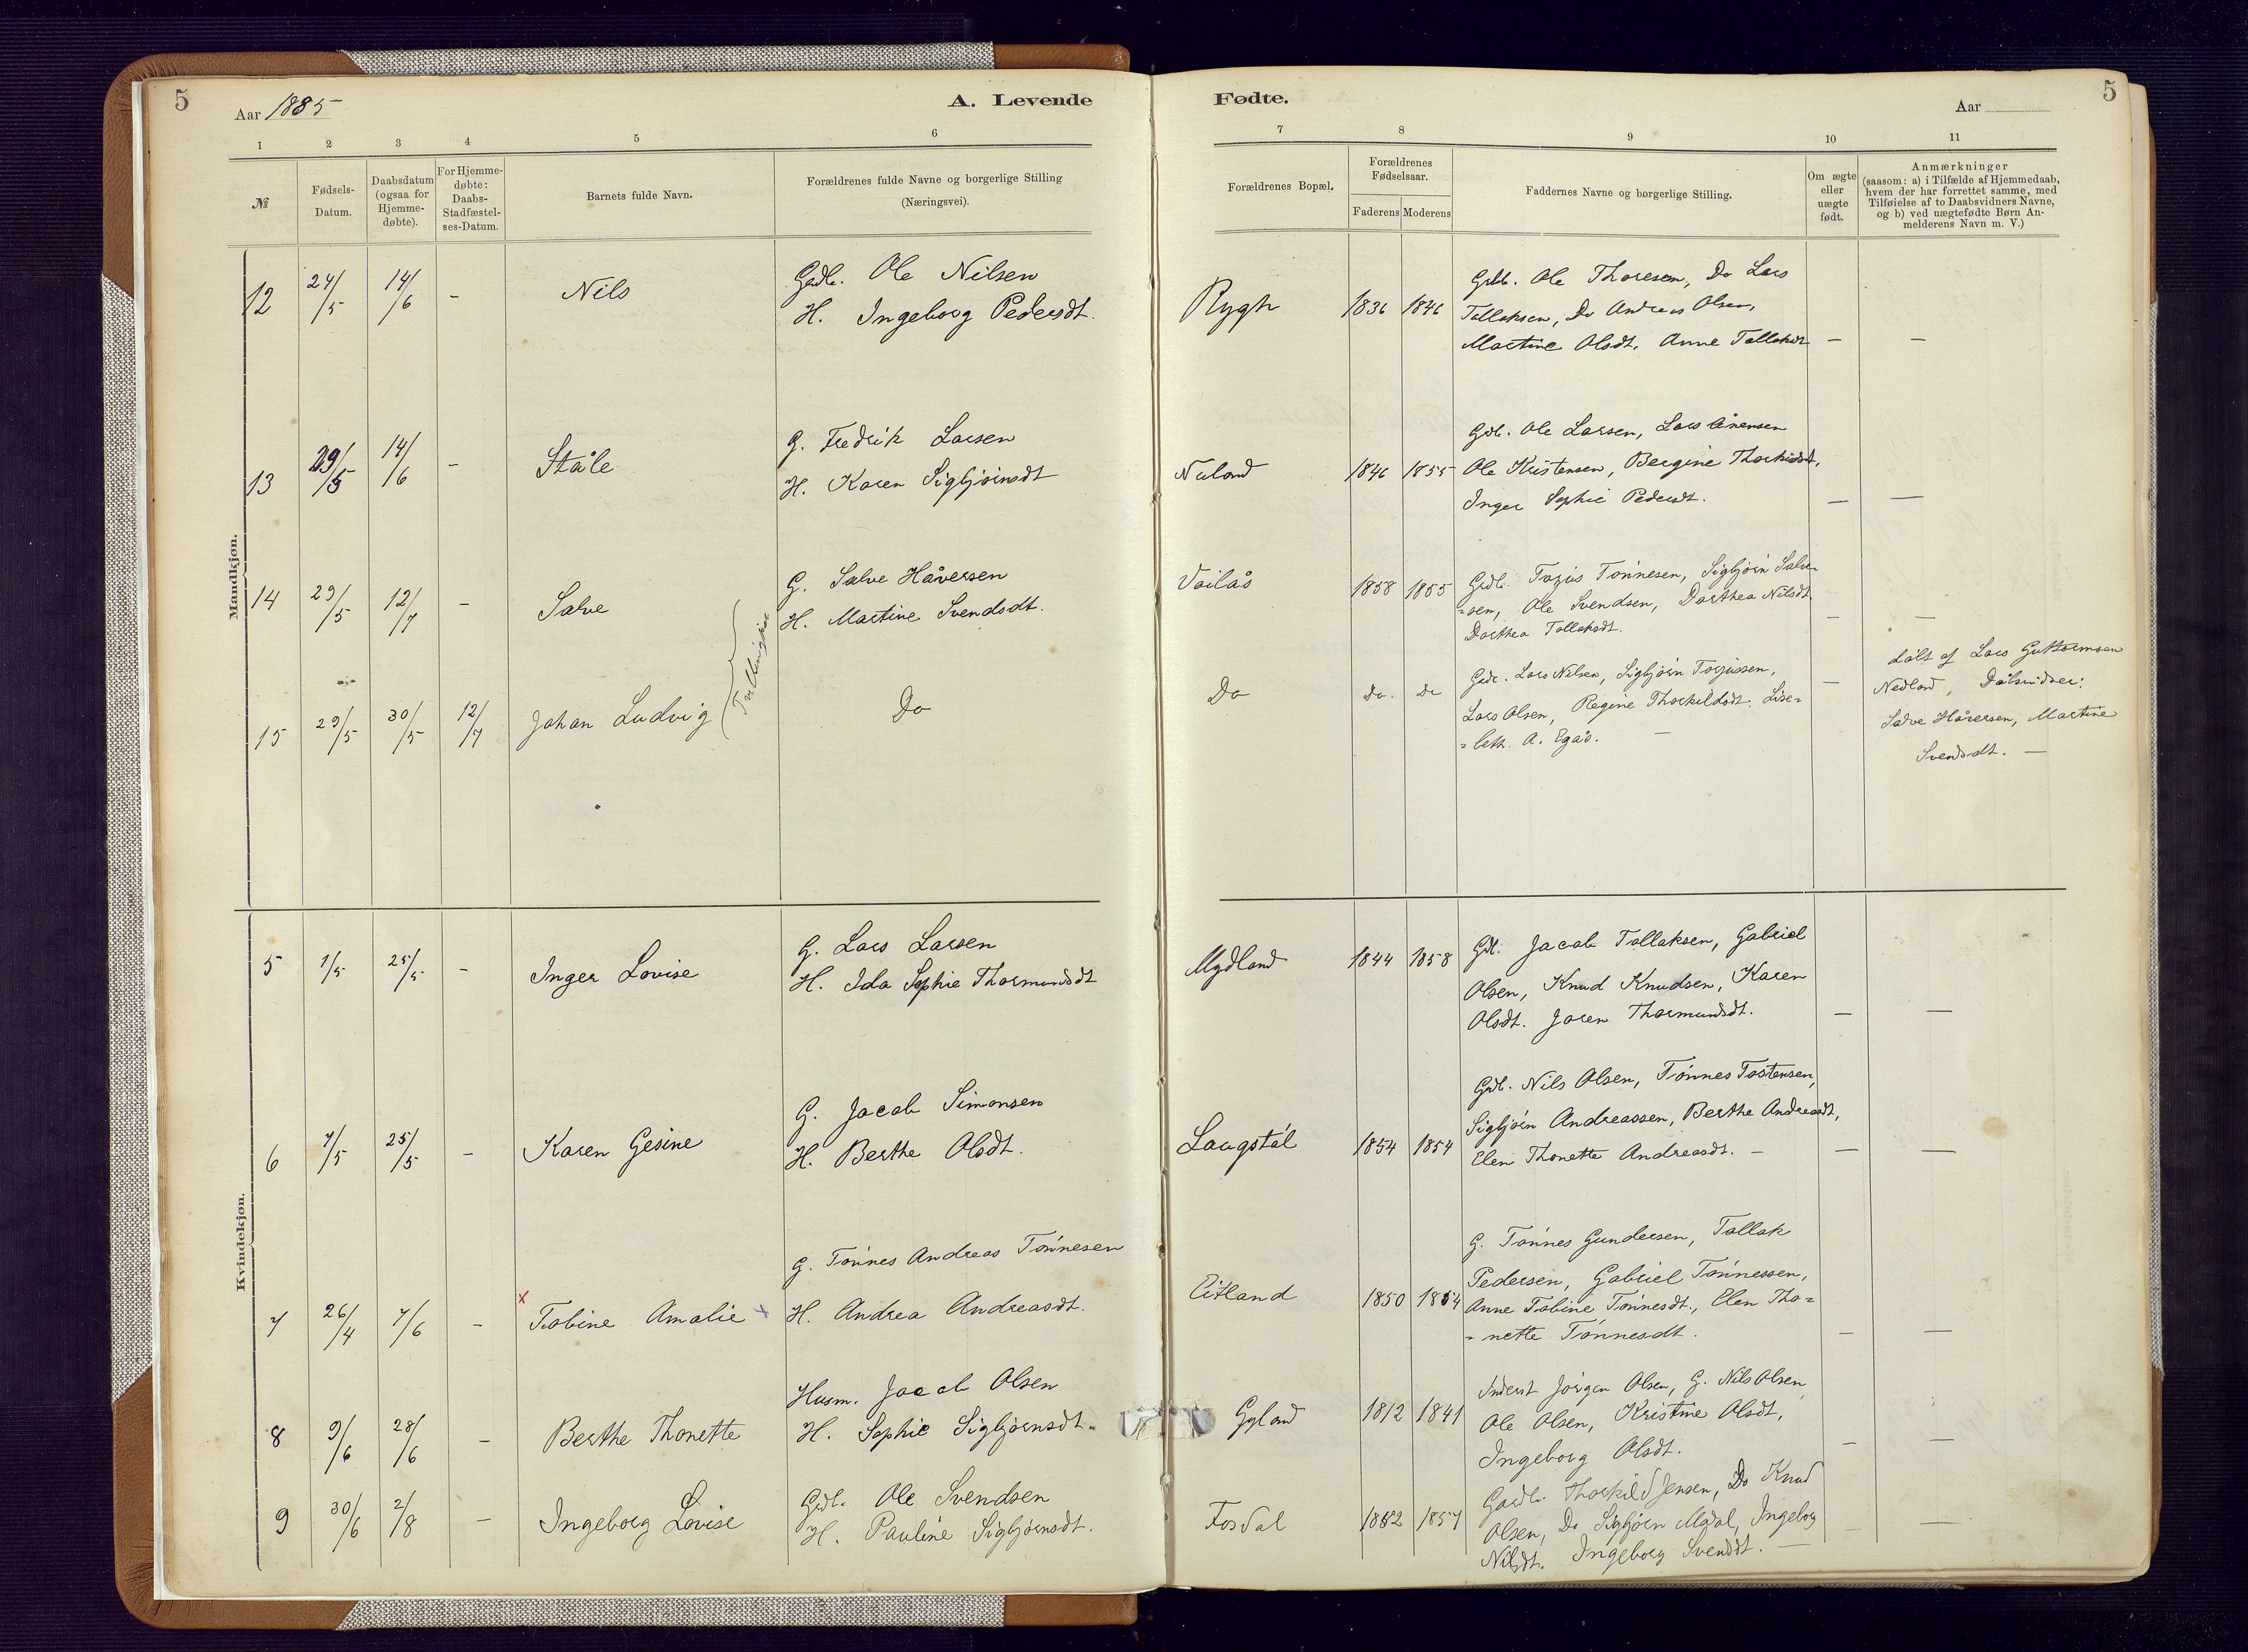 5
Aar 1885
A. Levende
Fødte.
Aar
5
1 2 3 4 5 6 7 8 9 10 11
№
Fødsels-Datum.
Daabsdatum (ogsaa for Hjemme-døbte).
For Hjemme-døbte: Daabs-Stadfæstel-ses-Datum.
Barnets fulde Navn.
Forældrenes fulde Navne og borgerlige Stilling
(Næringsvei).
Forældrenes Bopæl.
Forældrenes Fødselsaar.
Faderens Moderens
Faddernes Navne og borgerlige Stilling.
Om ægte eller uægte født.
Anmærkninger
(saasom: a) i Tilfælde af Hjemmedaab,
hvem der har forrettet samme, med
Tilføielse af to Daabsvidners Navne,
og b) ved uægtefødte Børn An-
melderens Navn m. V.)
Mandkjøn.
12 24/5 14/6 - Nils
Gdb. Ole Nilsen
H. Ingeborg Pedersdt.
Rygh 1836 1846
Gdb. Ole Thoresen, Do Lars
Tollaksen, Do Andreas Olsen,
Martine Olsdt. Anne Tollaksdt — —
13 29/5 14/6 - Ståle
G. Fredrik Larsen
H. Karen Sigbjörnsdt
Nuland 1846 1855
Gdb. Ole Larsen, Lars
Ole Kristensen, Bergine
Inger Sophie Pedersdt. — —
14 29/5 12/7 - Salve
G. Salve Håversen
H. Martine Svendsdt.
Vailås 1858 1855
Gdb. Torjus Tönnesen, Sigbjörn Salve-
=sen, Ole Svendsen, Dorthea Nilsdt.
Dorthea Tollaksdt. — —
Tvillinger
15 29/5 30/5 12/7 Johan Ludvig
Do
Do Do. Do
Gdb. Lars Nilsen, Sigbjörn Torjussen,
Lars Olsen, Regine Thorkildsdt. Lise-
=beth. A. Egås. —
—
döbt af Lars Guttormsen
Nedland, Döbsvidner:
Salve Håversen, Martine
Svendsdt. —
Kvindekjøn.
5 1/5 25/5 - Inger Lovise
G. Lars Larsen
H. Ida Sophie Thormundsdt
Mydland 1844 1858
Gdb. Jacob Tollaksen, Gabriel
Olsen, Knud Knudsen, Karen
Olsdt. Joren Thormundsdt. — —
6 7/5 25/5 - Karen Gesine
G. Jacob Simonsen
H. Berthe Olsdt.
Laugstöl 1854 1854
Gdb. Nils Olsen, Tönnes Tostensen,
Sigbjörn Andreassen, Berthe Andreasdt,
Elen Thonette Andreasdt. — — —
7 26/4 7/6 - x Tobine Amalie +
G. Tönnes Andreas Tönnesen
H. Andrea Andreasdt.
Eitland 1850 1854
G. Tönnes Gundersen, Tollak
Pedersen, Gabriel Tönnessen,
Anne Tobine Tönnesdt., Elen Tho=
=nette Tönnesdt. — —
8 9/6 28/6 - Berthe Thonette
Husm. Jacob Olsen
H. Sophie Sigbjörnsdt.
Gyland 1812 1841
Inderst Jörgen Olsen, G. Nils Olsen
Ole Olsen, Kristine Olsdt,
Ingeborg Olsdt. — —
9 30/6 2/8 - Ingeborg Lovise
Gdb. Ole Svendsen
H. Pauline Sigbjörnsdt.
Fosdal 1852 1857
Gaardb. Thorkild Jensen, Do Knud
Olsen, Do Sigbjörn Ingeborg
Nilsdt. Ingeborg Svendsdt. — — —